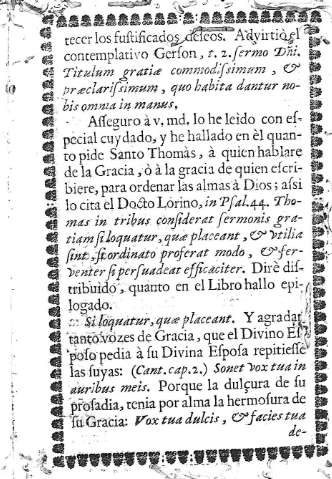 tecer los fustificados deſeos. Advirtiò el
contemplativo Gerſon, s. 2. ſermo Dñi.
Titulum gratiæ commodiſsimum, &
præclariſsimum, quo habita dantur no-
bis omnia in manus,
Aſſeguro à v, md. lo he leido con eſ-
pecial cuydado, y he hallado en èl quan-
to pide Santo Thomàs, à quien hablare
de la Gracia, ò à la gracia de quien eſcri-
biere, para ordenar las almas à Dios; aſsi
lo cita el Docto Lorino, in Pſal. 44. Tho-
mas in tribus conſiderat ſermonis gra-
tiam ſi loquatur, quæ placeant, & vtilia
ſint, ſi ordinato proferat modo, & fer-
venter ſi perſuadeat efficaciter. Dirè diſ-
tribuido, quanto en el Libro hallo epi-
logado.
Si loquatur, quæ placeant. Y agradar
tanto vozes de Gracia, que el Divino Eſ-
poſo pedia à ſu Divina Eſpoſa repitieſſe
las ſuyas: (Cant. cap. 2.) Sonet vox tua in
auribus meis. Porque la dulçura de ſu
proſadia, tenia por alma la hermoſura de
ſu Gracia: Vox tua dulcis, & facies tua
de-